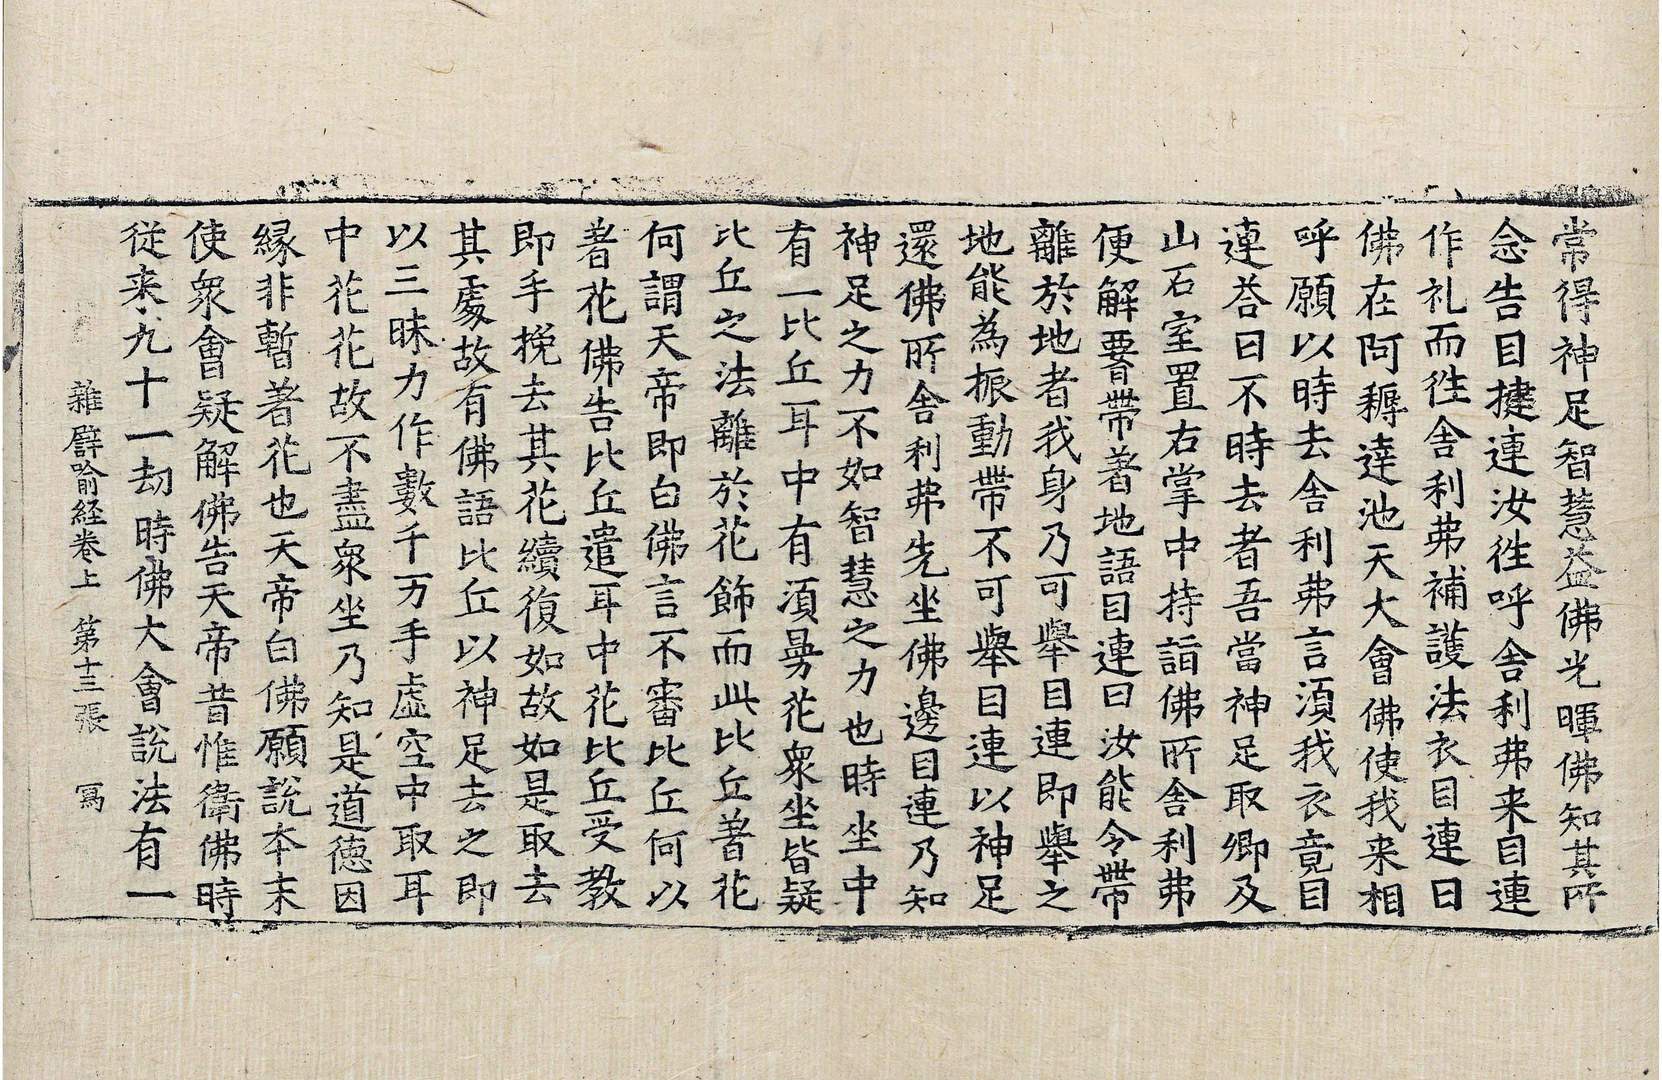 常得神足智慧益佛光暉佛知其所
念告目揵連汝徃呼舍利弗来目連
作礼而徃舍利弗補護法衣目連曰
佛在阿耨達池天大會佛使我来相
呼願以時去舍利弗言湏我衣竟目
連荅曰不時去者吾當神足取卿及
山石室置右掌中持詣佛所舍利弗
便解署帶著地語目連曰汝能令帶
離於地者我身乃可舉目連即舉之
地能為振動帶不可舉目連以神足
還佛所舍利弗先坐佛邊目連乃知
神足之力不如智慧之力也時坐中
有一比丘耳中有湏曼花衆坐皆疑
比丘之法離於花飾而此比丘著花
何謂天帝即白佛言不審比丘何以
著花佛告比丘遣耳中花比丘受教
即手挽去其花續復如故如是取去
其處故有佛語比丘以神足去之即
以三昧力作數千万手虚空中取耳
中花花故不盡衆坐乃知是道德因
緣非暫著花也天帝白佛願說本末
使衆會疑解佛告天帝昔惟衛佛時
従来九十一劫時佛大會說法有一
雜譬喻経巻上　第十三張　冩